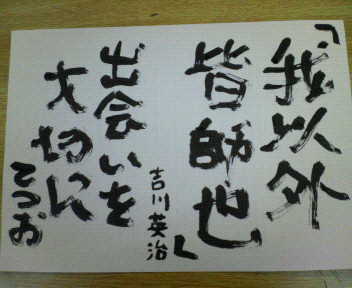 「我以外
皆師也」
吉川英治
出会いを
大切に
てつお